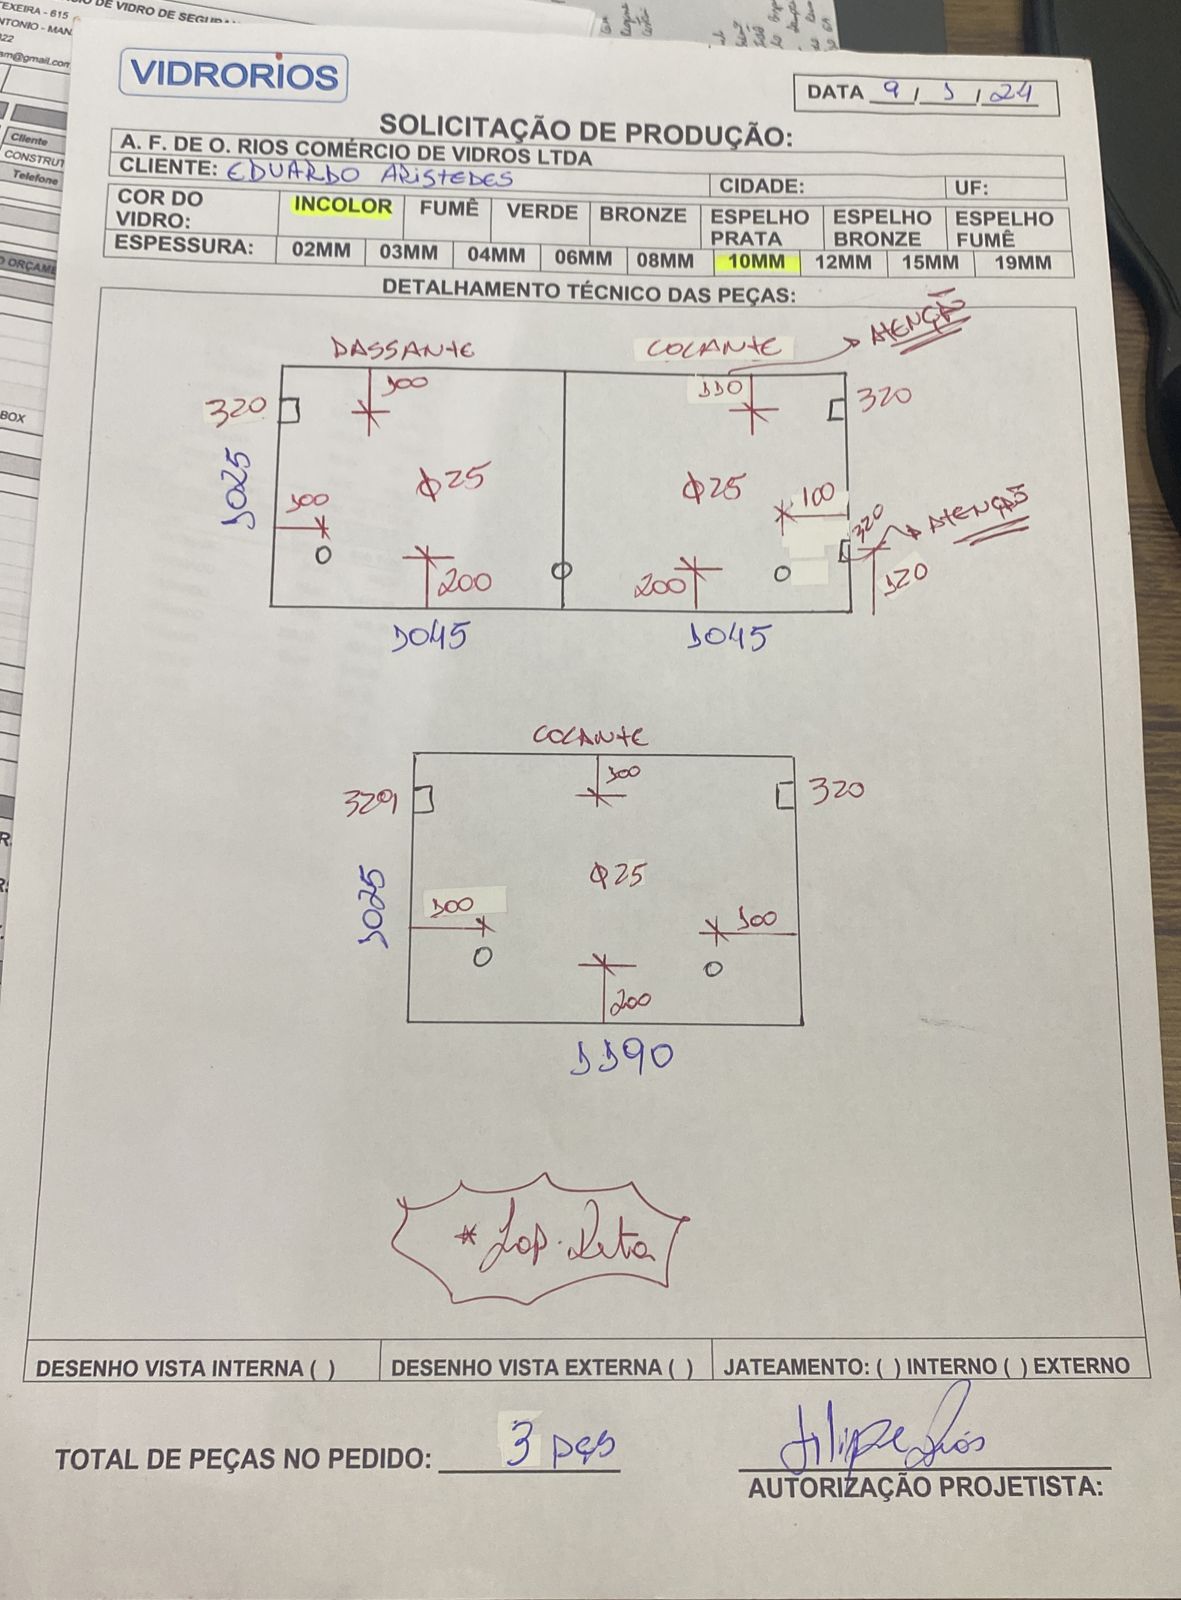 TEXEIRA - 615
DE VIDRO DE SEGU
NTONIO - MAN
22
am@gmail.com
Cliente
CONSTRUT
Telefone
O ORÇAME
BOX
VIDRORIOS
DATA 9 / 1 / 24
SOLICITAÇÃO DE PRODUÇÃO:
A. F. DE O. RIOS COMÉRCIO DE VIDROS LTDA
CLIENTE: EDUARDO ARISTEDES CIDADE: UF:
COR DO VIDRO: INCOLOR FUMÊ VERDE BRONZE ESPELHO PRATA ESPELHO BRONZE ESPELHO FUMÊ
ESPESSURA: 02MM 03MM 04MM 06MM 08MM 10MM 12MM 15MM 19MM
DETALHAMENTO TÉCNICO DAS PEÇAS:
PASSANTE COLANTE ATENÇÃO
320 100 110 320
1025 Φ25 Φ25
100 100
320 ATENÇÃO
200 200 120
1045 1045
COLANTE
320 100 320
1025 Φ25
100 100
200
1190
* Lap. Reta
DESENHO VISTA INTERNA ( ) DESENHO VISTA EXTERNA ( ) JATEAMENTO: ( ) INTERNO ( ) EXTERNO
TOTAL DE PEÇAS NO PEDIDO: 3 pçs
Filipe Rios
AUTORIZAÇÃO PROJETISTA: